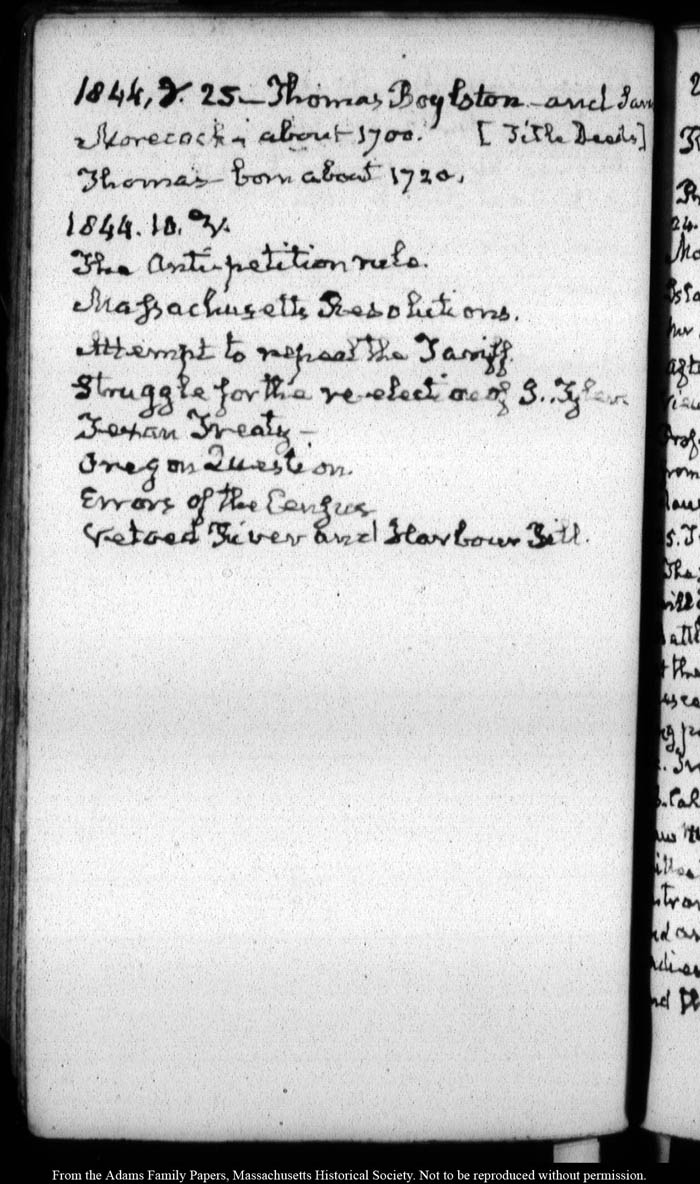 1844, 25 — Thomas Boylston — and
Morecock — about 1700. [Title Deeds]
Thomas — born about 1720.
1844. 10. V.
The Anti-petition rule.
Massachusetts Resolutions.
Attempt to repeal the Tariff.
Struggle for the re-election of J. Tyler.
Texan Treaty —
Oregon Question.
Errors of the Census
Vetoed River and Harbour Bill.
From the Adams Family Papers, Massachusetts Historical Society. Not to be reproduced without permission.